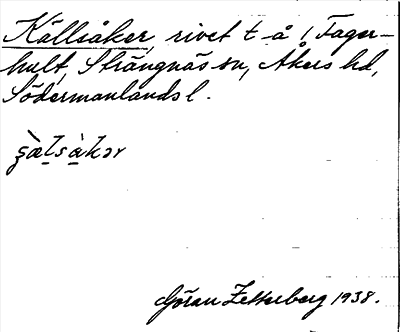 Källsåker, rivet t å i Fager-
hult, Strängnäs sn, Åkers hd,
Södermanlands l.
Göran Zetterberg 1938.